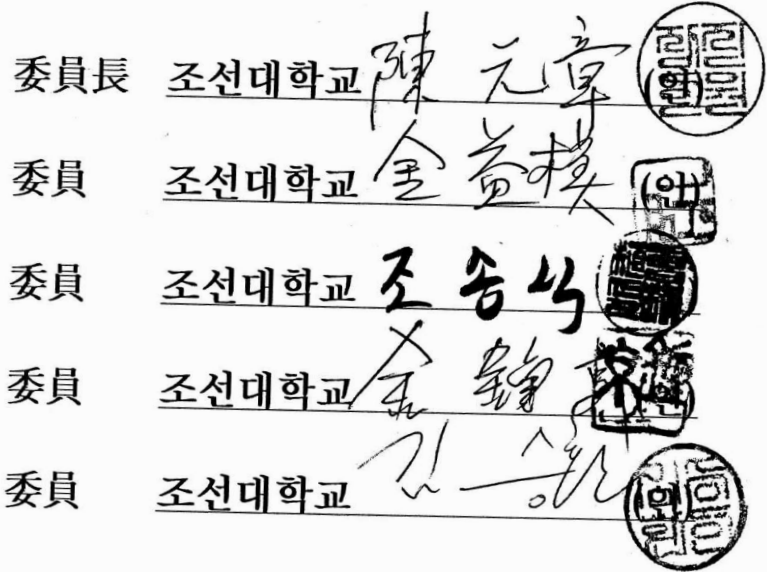 委員長 조선대학교 陳元章 (인)
委員 조선대학교 金益模 (인)
委員 조선대학교 조송식
委員 조선대학교 金
委員 조선대학교 김승환 (인)